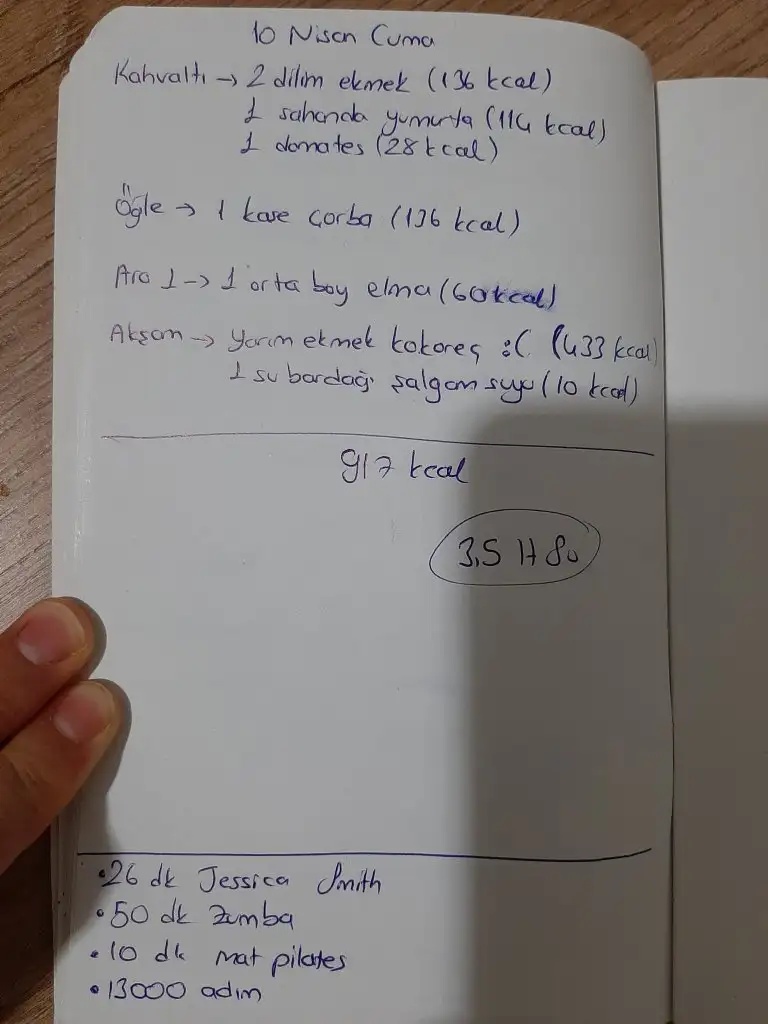 10 Nisan Cuma
Kahvaltı → 2 dilim ekmek (136 kcal)
1 sahanda yumurta (114 kcal)
1 domates (28 kcal)
Öğle → 1 kase çorba (136 kcal)
Ara 1 → 1 orta boy elma (60 kcal)
Akşam → yarım ekmek kokoreç :( (433 kcal)
1 su bardağı şalgam suyu (10 kcal)
917 kcal
3,5 lt su
• 26 dk Jessica Smith
• 50 dk zumba
• 10 dk mat pilates
• 13000 adım